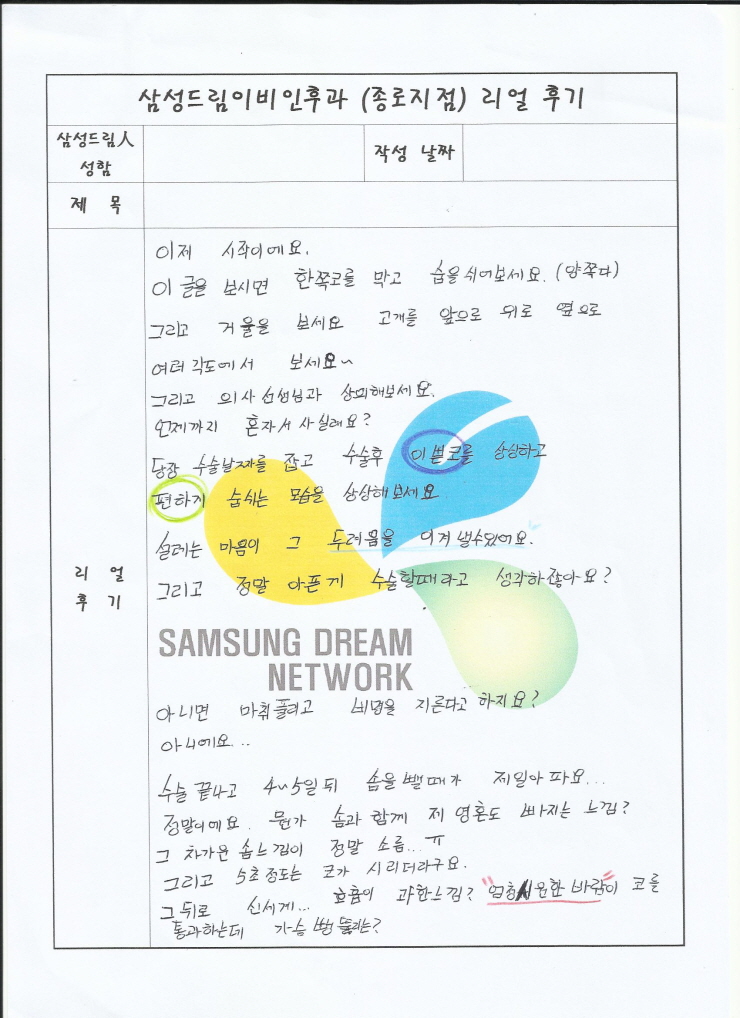 삼성드림이비인후과 (종로지점) 리얼 후기
삼성드림人
성함
작성 날짜
제 목
이제 시작이에요.
이 글을 보시면 한쪽코를 막고 숨을 쉬어보세요. (양쪽다)
그리고 거울을 보세요 고개를 앞으로 뒤로 옆으로
여러 각도에서 보세요~
그리고 의사선생님과 상의해보세요.
언제까지 혼자서 사실래요?
당장 수술날짜를 잡고 수술후 이쁜코를 상상하고
편하게 숨쉬는 모습을 상상해보세요
설레는 마음이 그 두려움을 이겨 낼수있어요.
리 얼
후 기
그리고 정말 아픈게 수술할때라고 생각하잖아요?
SAMSUNG DREAM
NETWORK
아니면 마취풀리고 비명을 지른다고 하지요?
아니에요..
수술 끝나고 4~5일뒤 솜을뺄때가 제일아파요...
정말이에요. 뭔가 솜과 함께 제 영혼도 빠지는 느낌?
그 차가운 솜느낌이 정말 소름...ㅠ
그리고 5초정도는 코가 시리더라구요.
그 뒤로 신세계... 호흡이 과한느낌? "엄청시원한 바람"이 코를
통과하는데 가슴 뻥 뚫리는?